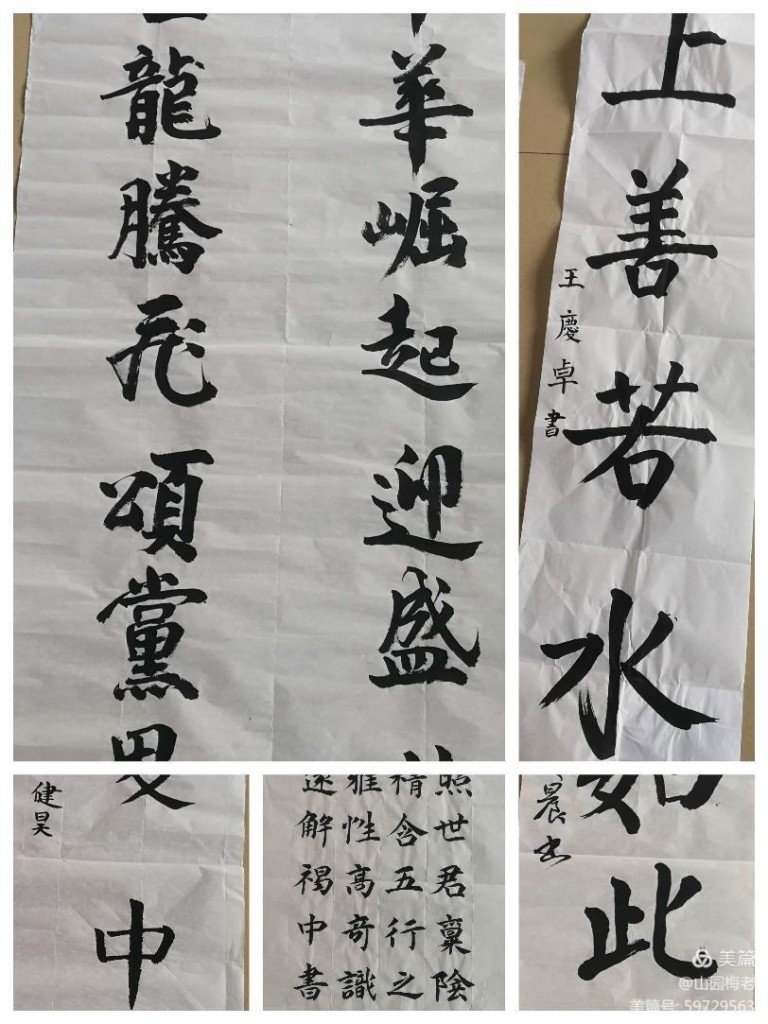 華崛起迎盛
龍騰飛頌黨
上善若水
王慶卓書
中
健昊
照世君稟陰
精含五行之
雅性高奇識
遠解褐中書
如此
晨书
美篇
@山园梅老
美篇号: 59729563